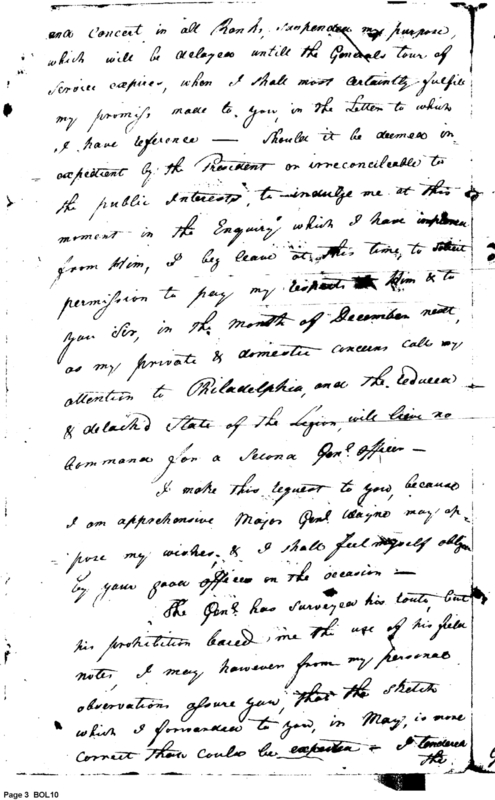 and Concert in all Ranks, suspended my purpose,
which will be delayed untill the Generals tour of
Service expires, when I shall most Certainly fulfill
my promiss made to you, in the Letter to which
I have reference — Should it be deemed in-
expedient by the President or irreconcileable to
the public Interests, to indulge me at this
moment in the Enquiry which I have implored
from Him, I beg leave at this time, to solicit
permission to pay my respects to Him & to
you Sir, in the month of December next,
as my private & domestic concerns call my
attention to Philadelphia, and the reduced
& detach'd State of the Legion, will leave no
Command for a Second Genl. Officer —
I make this request to you, because
I am apprehensive Major Genl. Wayne may op-
pose my wishes, & I shall feel myself oblig'd
by your good offices on the occasion —
The Genl. has surveyed his route, but
his prohibition bared me the use of his field
notes, I may however from my personal
observations assure you, that the Sketch
which I forwarded to you, in May, is more
correct than could be expected — I tendered
the
Page 3 BOL10